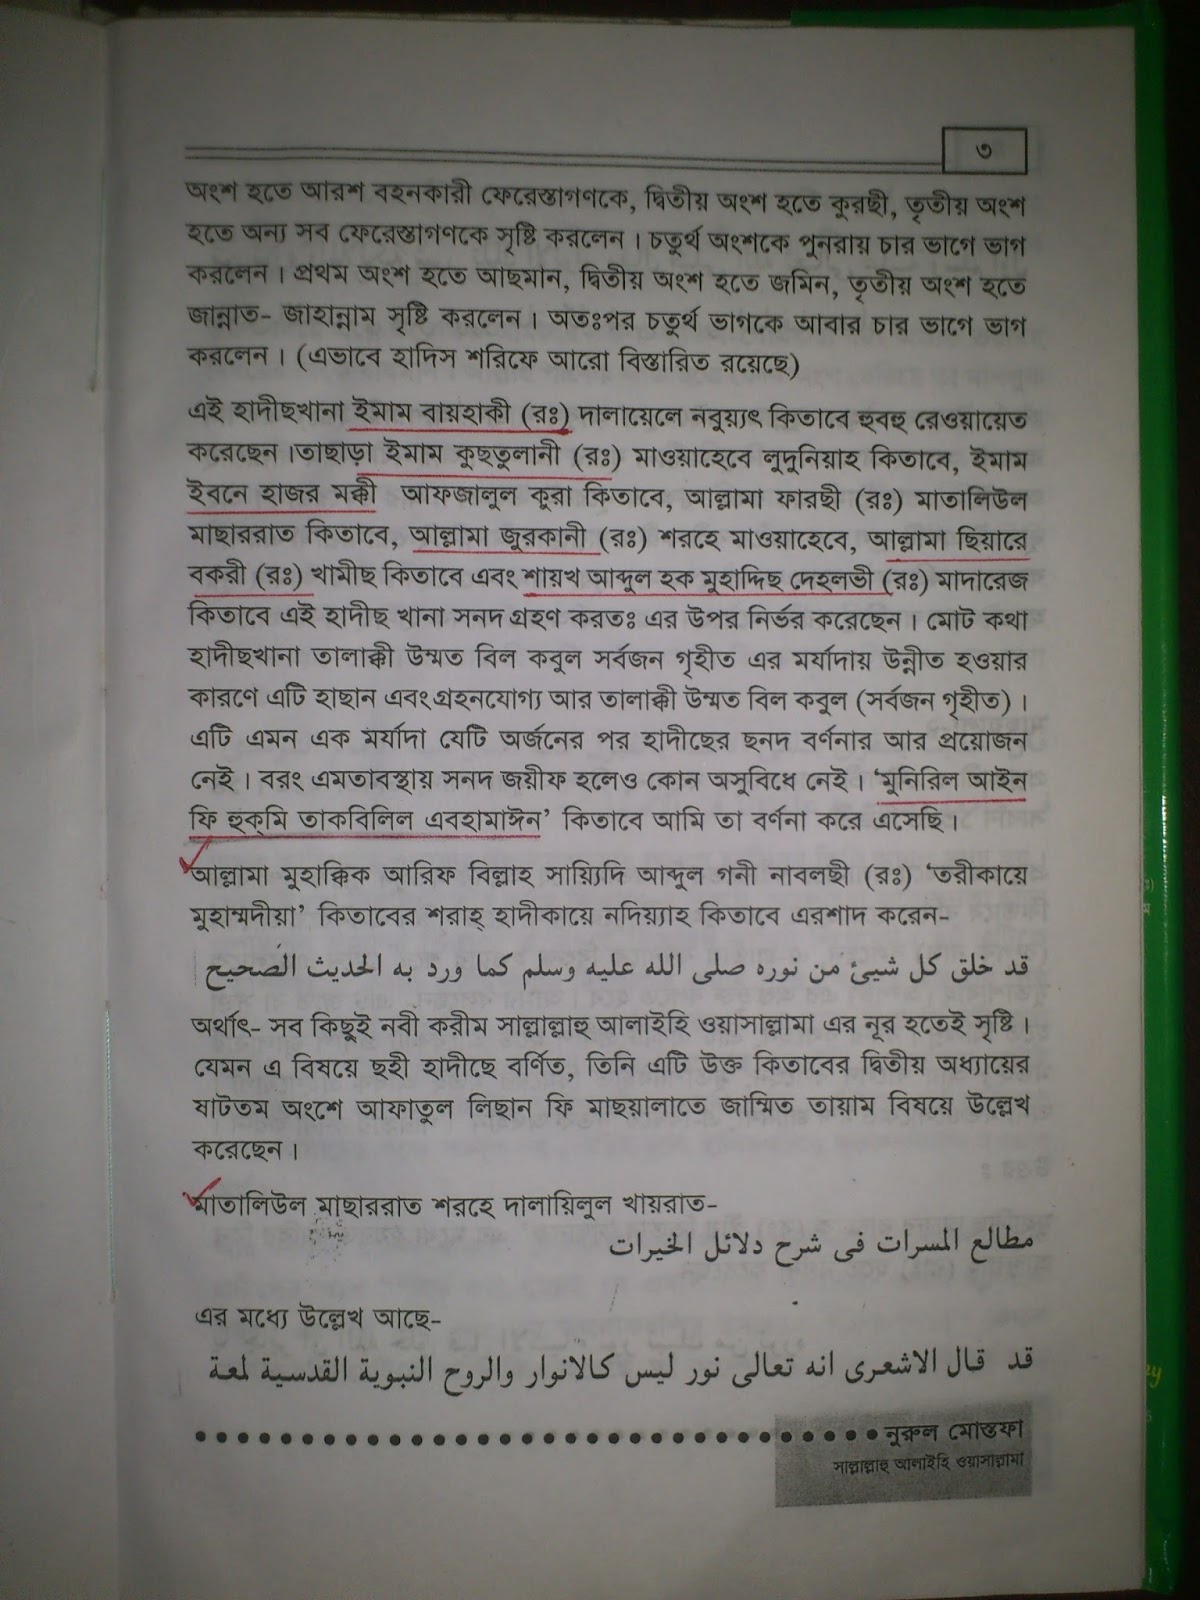 ৩
অংশ হতে আরশ বহনকারী ফেরেস্তাগণকে, দ্বিতীয় অংশ হতে কুরছী, তৃতীয় অংশ
হতে অন্য সব ফেরেস্তাগণকে সৃষ্টি করলেন। চতুর্থ অংশকে পুনরায় চার ভাগে ভাগ
করলেন। প্রথম অংশ হতে আছমান, দ্বিতীয় অংশ হতে জমিন, তৃতীয় অংশ হতে
জান্নাত- জাহান্নাম সৃষ্টি করলেন। অতঃপর চতুর্থ ভাগকে আবার চার ভাগে ভাগ
করলেন। (এভাবে হাদিস শরিফে আরো বিস্তারিত রয়েছে)
এই হাদীছখানা ইমাম বায়হাকী (রঃ) দালায়েলে নবুয়্যৎ কিতাবে হুবহু রেওয়ায়েত
করেছেন।তাছাড়া ইমাম কুছতুলানী (রঃ) মাওয়াহেবে লুদুনিয়াহ কিতাবে, ইমাম
ইবনে হাজর মক্কী আফজালুল কুরা কিতাবে, আল্লামা ফারছী (রঃ) মাতালিউল
মাছাররাত কিতাবে, আল্লামা জুরকানী (রঃ) শরহে মাওয়াহেবে, আল্লামা ছিয়ারে
বকরী (রঃ) খামীছ কিতাবে এবং শায়খ আব্দুল হক মুহাদ্দিছ দেহলভী (রঃ) মাদারেজ
কিতাবে এই হাদীছ খানা সনদ গ্রহণ করতঃ এর উপর নির্ভর করেছেন। মোট কথা
হাদীছখানা তালাক্কী উম্মত বিল কবুল সর্বজন গৃহীত এর মর্যাদায় উন্নীত হওয়ার
কারণে এটি হাছান এবং গ্রহনযোগ্য আর তালাক্কী উম্মত বিল কবুল (সর্বজন গৃহীত)।
এটি এমন এক মর্যাদা যেটি অর্জনের পর হাদীছের ছনদ বর্ণনার আর প্রয়োজন
নেই। বরং এমতাবস্থায় সনদ জয়ীফ হলেও কোন অসুবিধে নেই। ‘মুনিরিল আইন
ফি হুক্‌মি তাকবিলিল এবহামাঈন’ কিতাবে আমি তা বর্ণনা করে এসেছি।
আল্লামা মুহাক্কিক আরিফ বিল্লাহ সায়্যিদি আব্দুল গনী নাবলছী (রঃ) ‘তরীকায়ে
মুহাম্মদীয়া’ কিতাবের শরাহ্ হাদীকায়ে নদিয়্যাহ কিতাবে এরশাদ করেন-
قد خلق كل شيئ من نوره صلى الله عليه وسلم كما ورد به الحديث الصحيح
অর্থাৎ- সব কিছুই নবী করীম সাল্লাল্লাহু আলাইহি ওয়াসাল্লামা এর নূর হতেই সৃষ্টি।
যেমন এ বিষয়ে ছহী হাদীছে বর্ণিত, তিনি এটি উক্ত কিতাবের দ্বিতীয় অধ্যায়ের
ষাটতম অংশে আফাতুল লিছান ফি মাছয়ালাতে জাম্মিত তায়াম বিষয়ে উল্লেখ
করেছেন।
মাতালিউল মাছাররাত শরহে দালায়িলুল খায়রাত-
مطالع المسرات فى شرح دلائل الخيرات
এর মধ্যে উল্লেখ আছে-
قد قال الاشعرى انه تعالى نور ليس كالانوار والروح النبوية القدسية لمعة
নুরুল মোস্তফা
সাল্লাল্লাহু আলাইহি ওয়াসাল্লামা